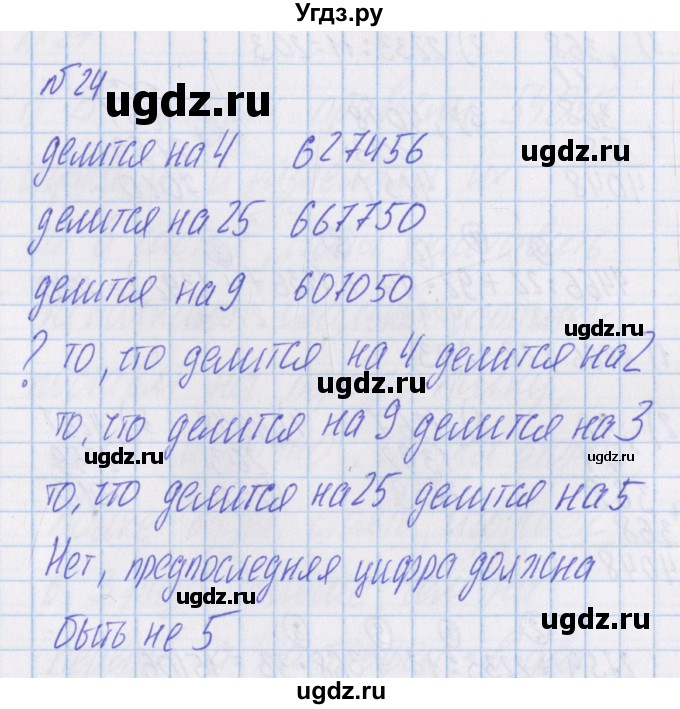 Угдз.ру
№24
ugdz.ru
ugdz.ru
делится на 4 627456
делится на 25 667750
ugdz.ru
делится на 9 607050
ugdz.ru
? то, что делится на 4 делится на 2
ugdz.ru
то, что делится на 9 делится на 3
ugdz.ru
ugdz.ru
то, что делится на 25 делится на 5
Нет, предпоследняя цифра должна
ugdz.ru
ugdz.ru
быть не 5
ugdz.ru